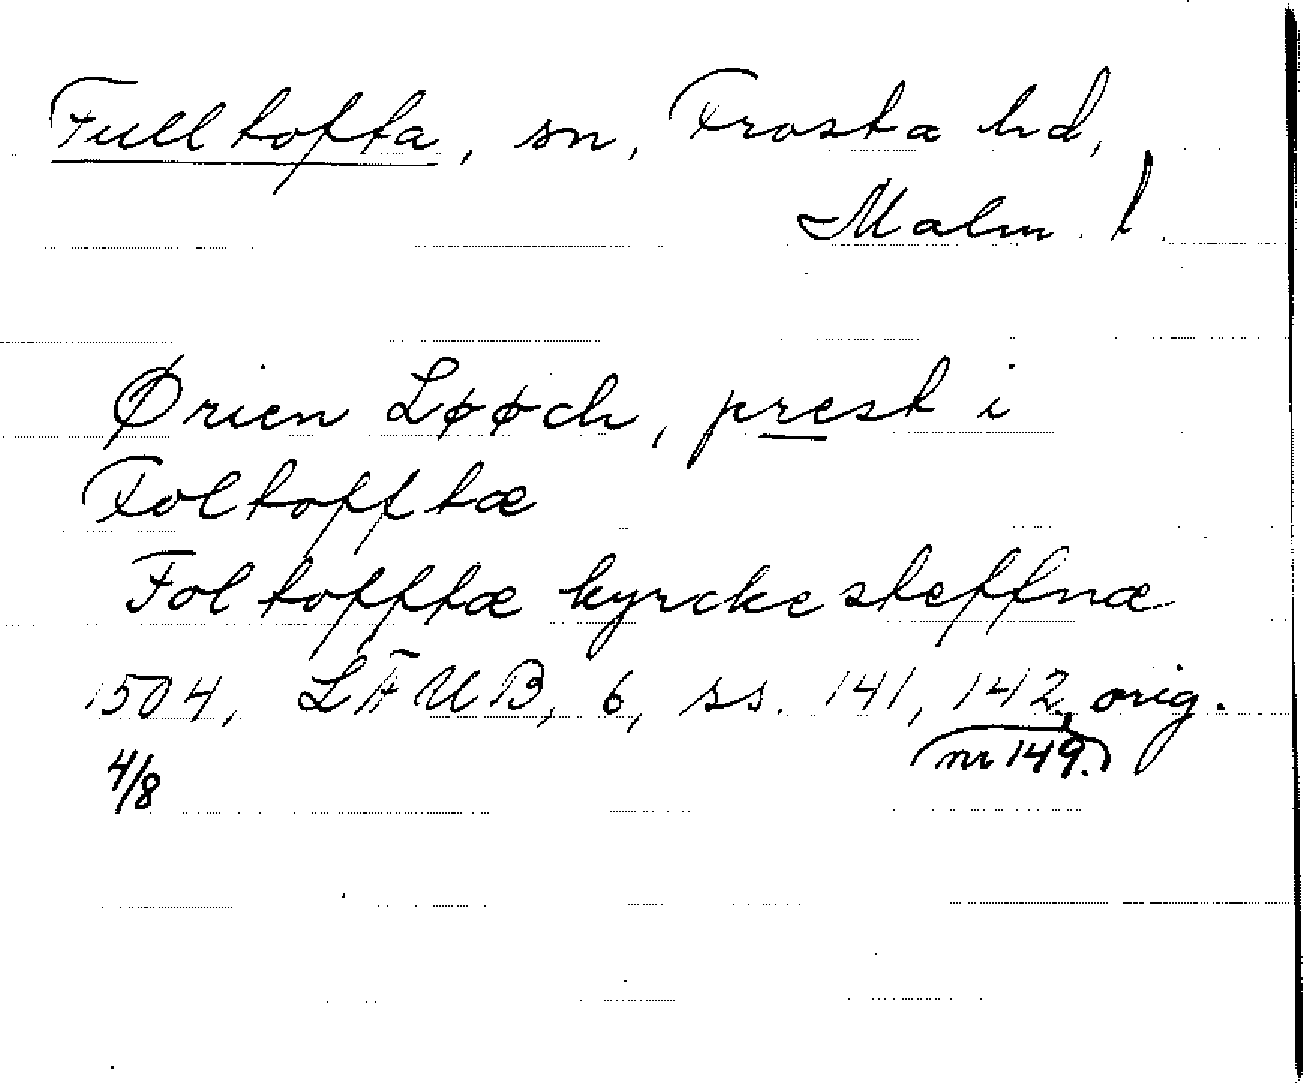 Fulltofta, sn, Frosta hd,
Malm. l.
Ørien Løøch, prest i
Foltofftæ
Foltofftæ kyrckesteffnæ
1504, LÄUB, 6, ss. 141, 142, orig.
nr 149.
4/8